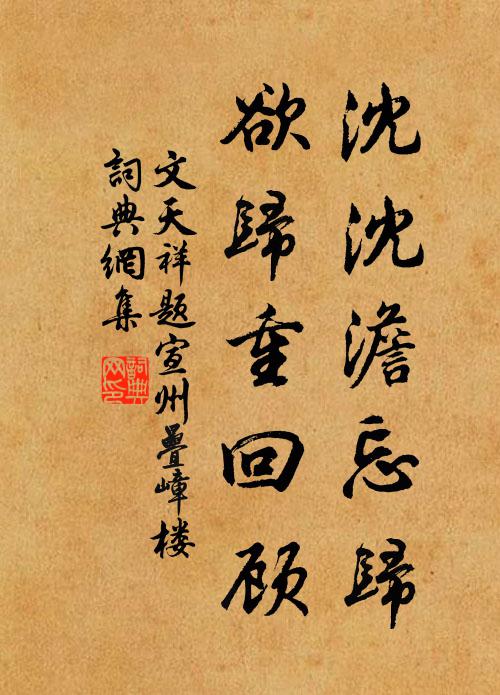 沈沈澹忘歸
欲歸重回顾
文天祥题宣州疊嶂楼
詞典網集
詞典
网印